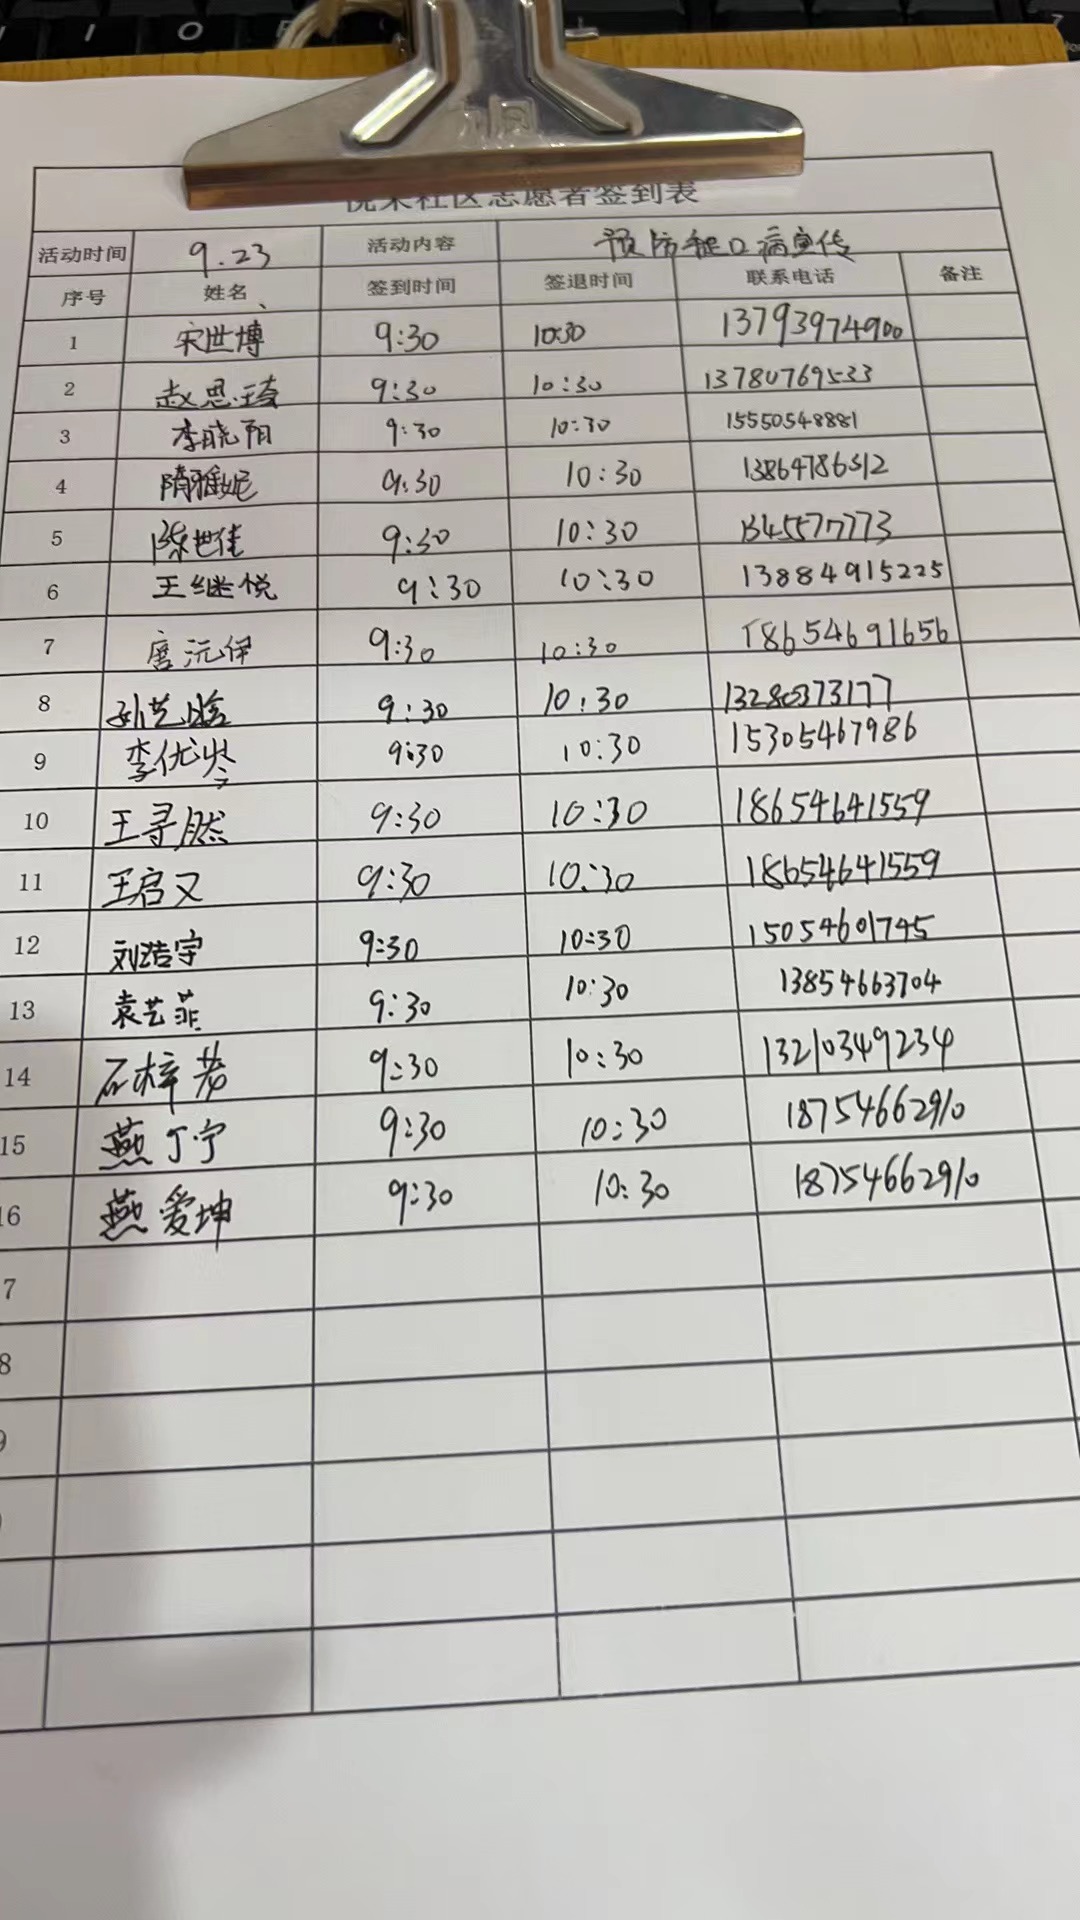 社区志愿者签到表
活动时间 9.23 活动内容 预防手足口病宣传
序号 姓名 签到时间 签退时间 联系电话 备注
1 宋世博 9:30 10:30 13793974900
2 赵思琦 9:30 10:30 13780769533
3 李晓阳 9:30 10:30 15550548881
4 隋雅妮 9:30 10:30 13864786512
5 陈世佳 9:30 10:30
6 王继悦 9:30 10:30 13884915225
7 唐沅伊 9:30 10:30 18654691656
8 孙艺 9:30 10:30 13280373177
9 李优 9:30 10:30 15305467986
10 王寻然 9:30 10:30 18654641559
11 王启又 9:30 10:30 18654641559
12 刘浩宇 9:30 10:30 15054601745
13 袁艺菲 9:30 10:30 13854663704
14 石梓 9:30 10:30 13210349234
15 燕丁宁 9:30 10:30 18754662910
16 燕爱坤 9:30 10:30 18754662910
7
8
9